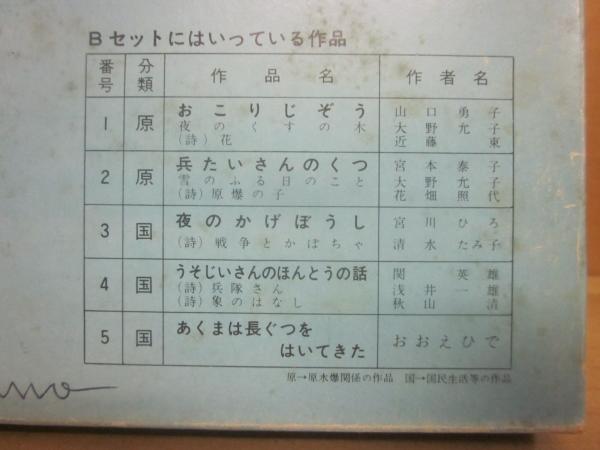 Bセットにはいっている作品
番号 分類 作品名 作者名
1 原 おこりじぞう 山口勇子
夜のくすの木 大野允子
(詩)花 近藤東
2 原 兵たいさんのくつ 宮本泰子
雪のふる日のこと 大野允子
(詩)原爆の子 花畑照代
3 国 夜のかげぼうし 宮川ひろ
(詩)戦争とかぼちゃ 清水たみ子
4 国 うそじいさんのほんとうの話 関英雄
(詩)兵隊さん 浅井一雄
(詩)象のはなし 秋山清
5 国 あくまは長ぐつを
はいてきた おおえひで
原→原水爆関係の作品 国→国民生活等の作品